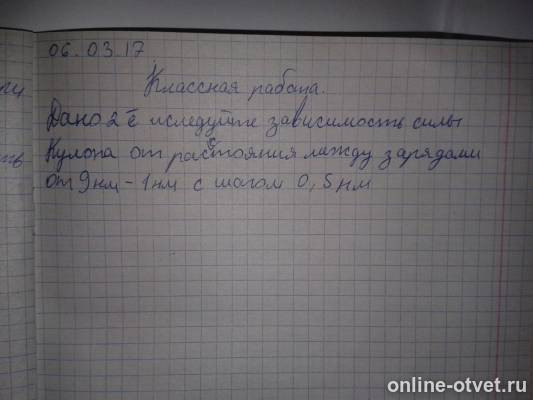 06.03.17
Классная работа.
Дано 2 ē иследуйте зависимость силы
Кулона от расстояния между зарядами
от 9нм - 1нм с шагом 0,5нм
online-otvet.ru